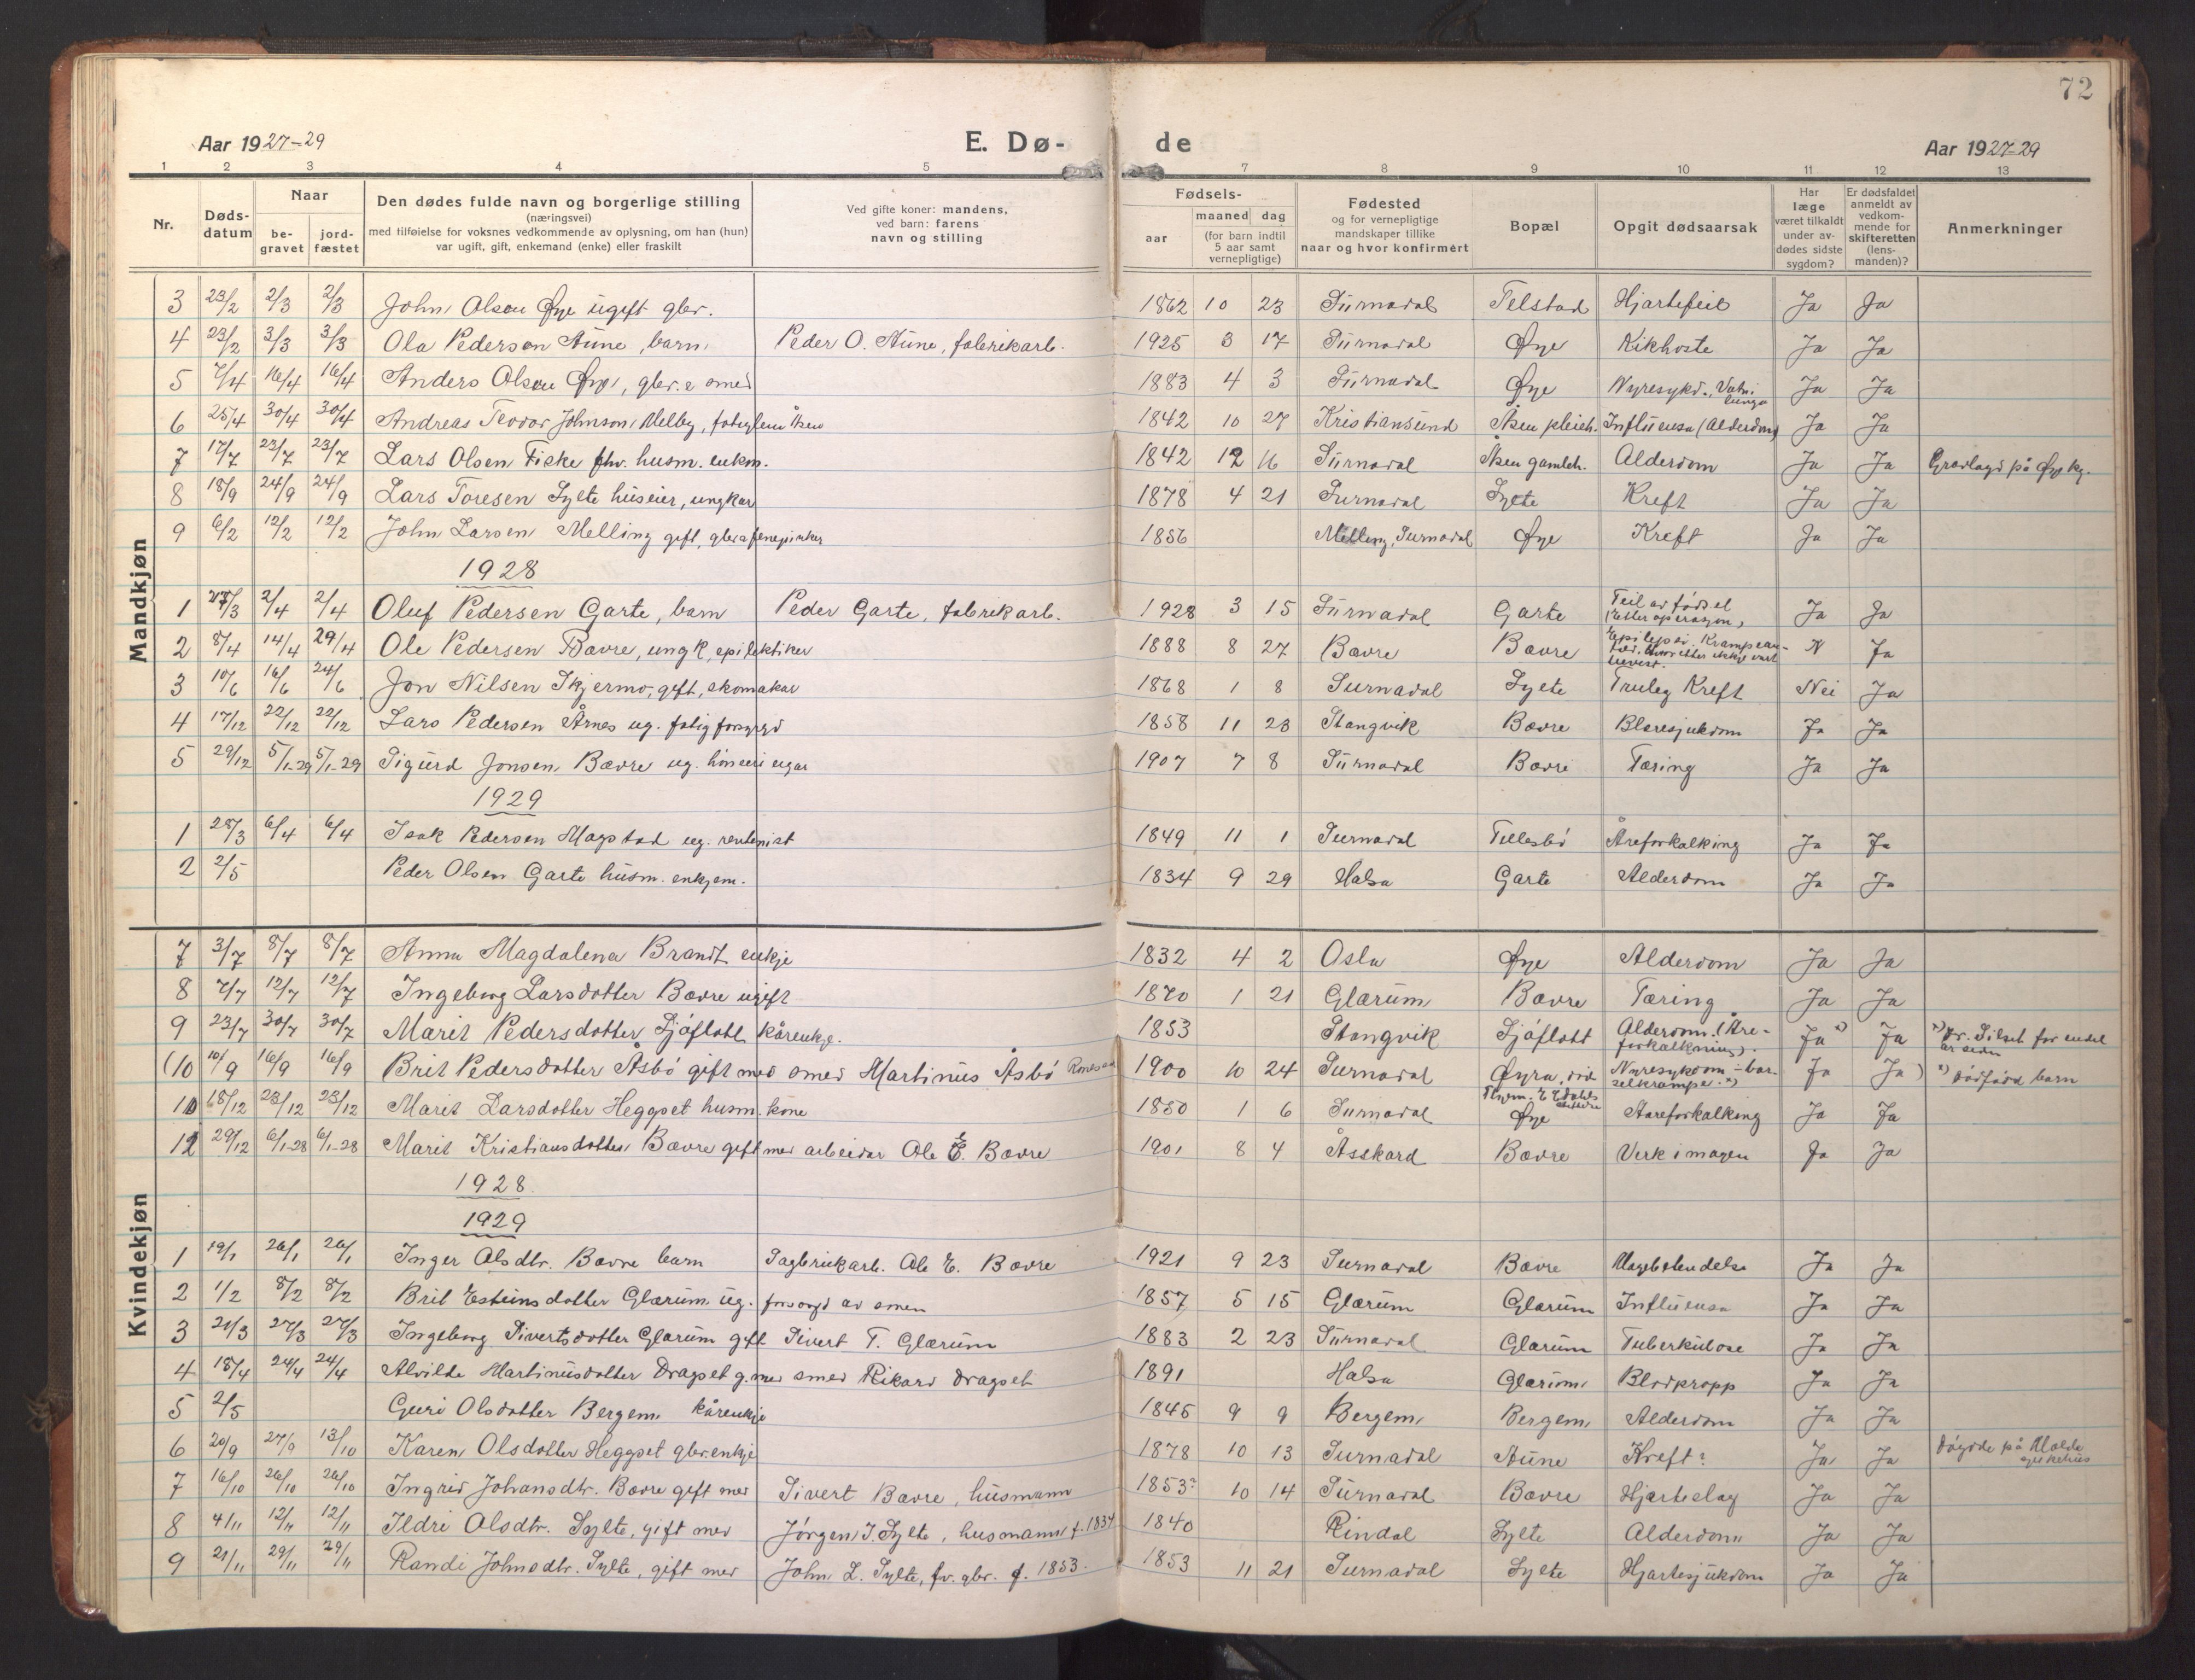 72
Aar 1927-29 E. Dø- de Aar 1927-29
1 2 3 4 5 7 8 9 10 11 12 13
Nr. Døds-datum Naar be-gravet jord-fæstet Den dødes fulde navn og borgerlige stilling (næringsvei) med tilføielse for voksnes vedkommende av oplysning, om han (hun) var ugift, gift, enkemand (enke) eller fraskilt Ved gifte koner: mandens, ved barn: farens navn og stilling Fødsels- aar maaned dag (for barn indtil 5 aar samt vernepligtige) Fødested og for vernepligtige mandskaper tillike naar og hvor konfirmert Bopæl Opgit dødsaarsak Har læge været tilkaldt under av-dødes sidste sygdom? Er dødsfaldet anmeldt av vedkom-mende for skifteretten (lens-manden)? Anmerkninger
Mandkjøn
3 23/2 2/3 2/3 John Olsen Øye ugift gbr. 1862 10 23 Surnadal Telstad Hjartefeil Ja Ja
4 23/2 3/3 3/3 Ola Pedersen Aune, barn Peder O. Aune, fabrikarb. 1925 3 17 Surnadal Øye Kikhoste Ja Ja
5 7/4 16/4 16/4 Anders Olsen Øye, gbr. & smed 1883 4 3 Surnadal Øye Nyresykd., Vatn i lunga Ja Ja
6 25/4 30/4 30/4 Andreas Teodor Johnson Melby, 1842 10 27 Kristiansund Åsen pleieh. Influensa (Alderdom) Ja Ja
7 17/7 23/7 23/7 Lars Olsen Fiske fhv. husm. enkm. 1842 12 16 Surnadal Åsen gamleh. Alderdom Ja Ja Gravlagd på Øye kg.
8 18/9 24/9 24/9 Lars Toresen Sylte huseier, ungkar 1878 4 21 Surnadal Sylte Kreft Ja Ja
9 6/2 12/2 12/2 John Larsen Melling gift, 1856 Melling, Surnadal Øye Kreft Ja Ja
1928
1 /3 2/4 2/4 Oluf Pedersen Garte, barn Peder Garte, fabrikarb. 1928 3 15 Surnadal Garte Feil av fødsel (etter operasjon) Ja Ja
2 8/4 14/4 29/4 Ole Pedersen Bævre, ungk, epileptiker 1888 8 27 Bævre Bævre Epilepsi, N Ja
3 10/6 16/6 24/6 Jon Nilsen Skjermo, gift, skomakar 1868 1 8 Surnadal Sylte Truleg Kreft Nei Ja
4 17/12 22/12 22/12 Lars Pedersen Årnes ug. fatigforsyrgd 1858 11 23 Stangvik Bævre Blæresjukdom Ja Ja
5 29/12 5/1-29 5/1-29 Sigurd Jonsen Bævre ug. 1907 7 8 Surnadal Bævre Tæring Ja Ja
1929
1 28/3 6/4 6/4 Isak Pedersen Mogstad ug. rentenist 1849 11 1 Surnadal Tellesbø Åreforkalking Ja Ja
2 2/5 Peder Olsen Garte husm. enkjem. 1834 9 29 Halsa Garte Alderdom Ja Ja
Kvindekjøn
7 3/7 8/7 8/7 Anna Magdalena Brandt enkje 1832 4 2 Oslo Øye Alderdom Ja Ja
8 7/7 12/7 12/7 Ingeborg Larsdotter Bævre ugift 1870 1 21 Glærum Bævre Tæring Ja Ja
9 23/7 30/7 30/7 Marit Pedersdotter Sjøflott kårenkje. 1853 Stangvik Sjøflott Alderdom. (Åre-forkalkning). Ja x) Ja x) Dr. Silset for endel år sidan
(10 10/9 16/9 16/9 Brit Pedersdotter Åsbø gift med smed Martinus Åsbø 1900 10 24 Surnadal Øyra, Nyresykdom - bar-selkrampe. x) Ja Ja) x) dødfødd barn
11 18/12 23/12 23/12 Marit Larsdotter Heggset husm. kone 1850 1 6 Surnadal Øye Åareforkalking Ja Ja
12 29/12 6/1-28 6/1-28 Marit Kristiansdotter Bævre gift med arbeidar Ole E. Bævre 1901 8 4 Åsskard Bævre Verk i magen Ja Ja
1928
1929
1 19/1 26/1 26/1 Inger Olsdtr. Bævre barn Sagbrukarb. Ole E. Bævre 1921 9 23 Surnadal Bævre Ja Ja
2 1/2 8/2 8/2 Brit Estensdotter Glærum ug. forsørgd av 1857 5 15 Glærum Glærum Influensa Ja Ja
3 21/3 27/3 27/3 Ingeborg Sivertsdotter Glærum gift Sivert T. Glærum 1883 2 23 Surnadal Glærum Tuberkulose Ja Ja
4 18/4 24/4 24/4 Alvilde Martinusdotter Dragset g. med smed Rikard Dragset 1891 Halsa Glærum Blodpropp Ja Ja
5 2/5 Guri Olsdotter Bergem kårenkje 1845 9 9 Bergem Bergem Alderdom Ja Ja
6 20/9 27/9 13/10 Karen Olsdotter Heggset gbr.enkje 1878 10 13 Surnadal Aune Kreft? Ja Ja Døydde på Molde sjukehus
7 16/10 26/10 26/10 Ingrid Johansdtr. Bævre gift med Sivert Bævre, husmann 1853? 10 14 Surnadal Bævre Hjarteslag Ja Ja
8 4/11 12/11 12/11 Ildri Olsdtr. Sylte, gift med Jørgen J. Sylte, husmann f. 1834 1840 Rindal Sylte Alderdom Ja Ja
9 21/11 29/11 29/11 Randi Johnsdtr. Sylte, gift med John L. Sylte, fv. gbr. f. 1853. 1853 11 21 Surnadal Sylte Hjartesjukdom Ja Ja